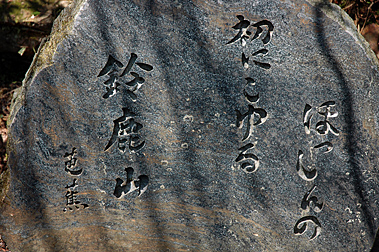 ほつしんの
初にこゆる
鈴鹿山
芭蕉